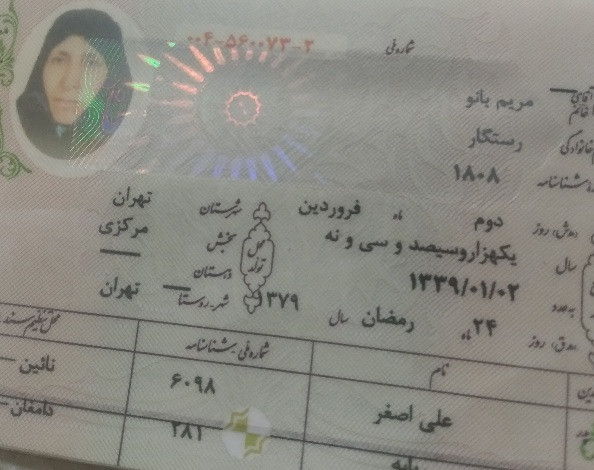 شماره ملی ۰۰۴-۵۶۰۰۷۳-۲
آقای
خانم مریم بانو
خانوادگی رستگار
شناسنامه ۱۸۰۸
روز دوم ماه فروردین
سال یکهزاروسیصد و سی و نه
به عدد ۱۳۳۹/۰۱/۰۲
روز ۲۴ ماه رمضان سال ۱۳۷۹
محل تولد
شهرستان تهران
بخش مرکزی
دهستان
شهر-روستا تهران
نام شماره ملی-شناسنامه محل تنظیم سند
علی اصغر ۶۰۹۸ نائین
۲۸۱ دامغان